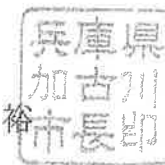 兵庫県
加古川
市長印
裕